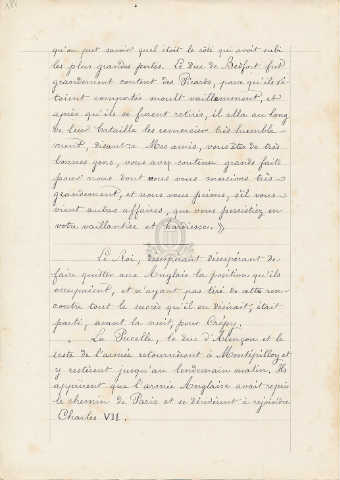 qu'on put savoir quel était le côté qui avait subi
les plus grandes pertes. Le Duc de Bedfort fut
grandement content des Picards, parce qu'ils s'é-
taient comportés moult vaillamment, et
après qu'ils se furent retirés, il alla au long
de leur bataille les remercier très humble-
ment, disant « Mes amis, vous êtes de très
bonnes gens, vous avez soutenu grands faits
pour nous dont nous vous mercions très
grandement, et nous vous prions, s'il vous
vient autres affaires, que vous persistiez en
votre vaillantise et hardiesse. »
Le Roi, désespérant de
faire quitter aux Anglais la position qu'ils
occupaient, et n'ayant pas tiré de cette ren-
contre tout le succès qu'il en désirait, était
parti, avant la nuit, pour Crépy.
La Pucelle, le duc d'Alençon et le
reste de l'armée retournèrent à Montépilloy et
y restèrent jusqu'au lendemain matin. Ils
apprirent que l'armée Anglaise avait repris
le chemin de Paris et se décidèrent à rejoindre
Charles VII.